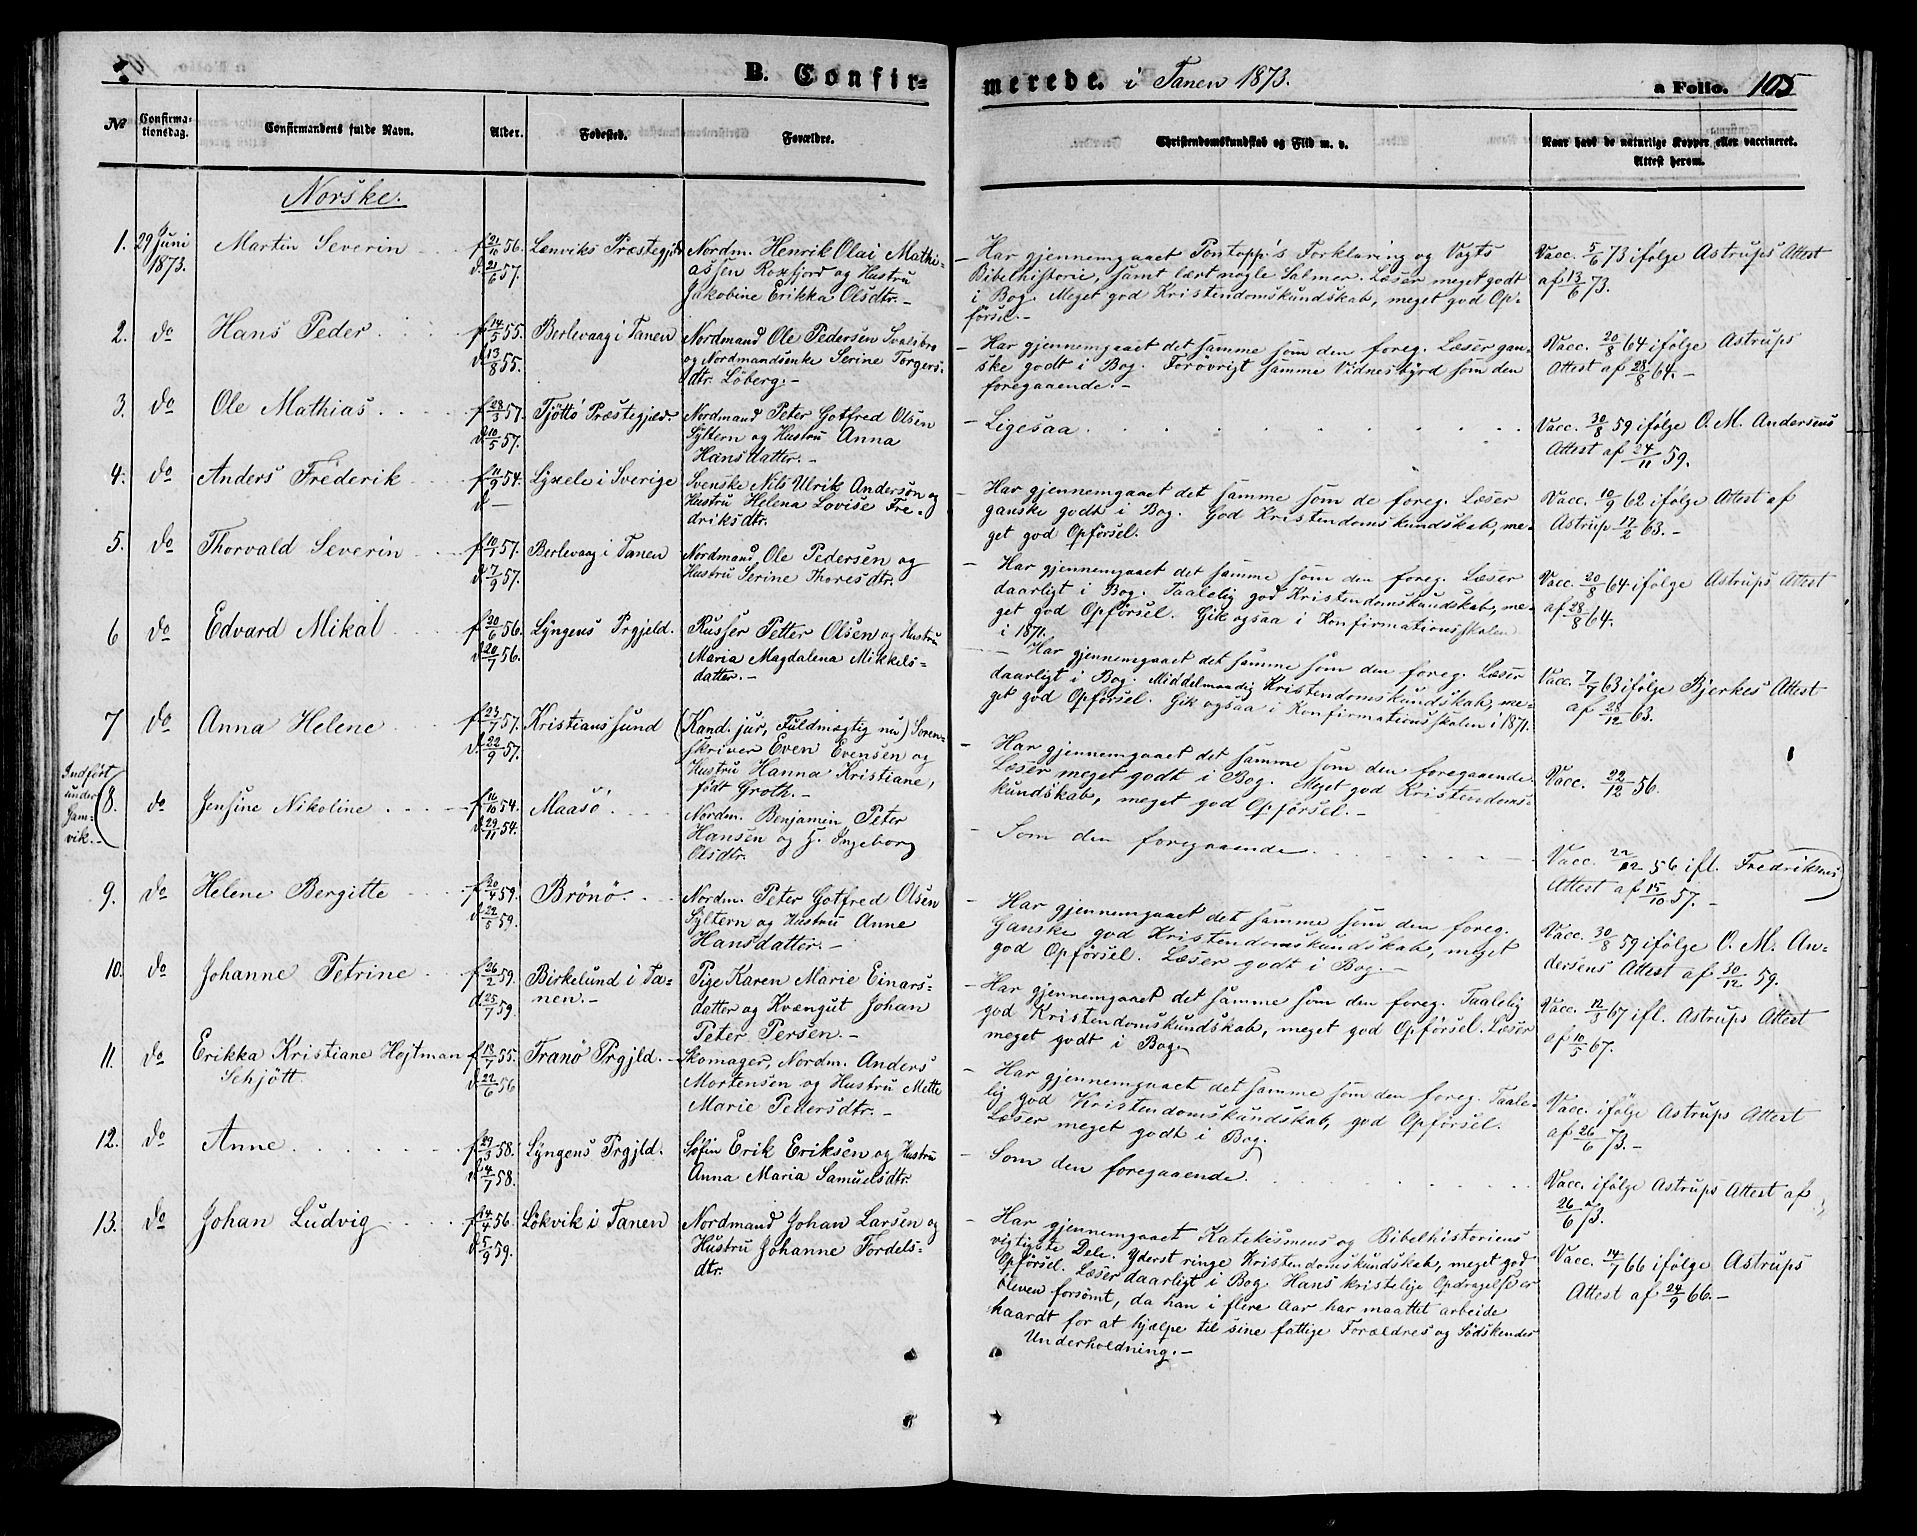 B. Confir-
merede. i Tanen 1873.
a Folio. 105
№
Confirma-
tionsdag.
Confirmandens fulde Navn.
Alder.
Fødested.
Forældre.
Christendomskundskab og Flid m. v.
Naar havt de naturlige Kopper eller vaccineret.
Attest herom.
Norske.
1. 29 Juni
1873.
Martin Severin
f 21/10 56.
d. 21/6 57.
Lenviks Præstegjeld
Nordm. Henrik Olai Mathi-
assen Rexfjord og Hustru
Jakobine Erikka Olsdtr. –
– Har gjennemgaaet Pontopp's Forklaring og Vogts
Bibelhistorie, samt lært nogle Salmer. Læser meget godt
i Bog. Meget god Kristendomskundskab, meget god Op-
førsel. –
Vacc. 5/6 73 ifølge Astrups Attest
af 13/6 73.
2. do Hans Peder
f 14/5 55.
d. 13/8 55.
Berlevaag i Tanen
Nordmand Ole Pedersen
og Nordmandsenke Serine Torgers-
dtr. Löberg. –
– Har gjennemgaaet det samme som den foreg. Læser gan-
ske godt i Bog. Forøvrigt samme Vidnesbyrd som den
foregaaende. –
Vacc. 20/8 64 ifølge Astrups
Attest af 28/8 64. –
3. do Ole Mathias
f 28/3 57.
d. 10/5 57.
Tjöttö Præstegjeld.
Nordmand Peter Gotfred Olsen
Syltern og Hustru Anna
Hansdatter. –
– Ligesaa
Vacc. 30/8 59 ifølge O. M. Andersens
Attest af 24/11 59.
4. do Anders Frederik
f 11/9 54.
d –
Lyxele i Sverige
Svenske Nils Ulrik Anderson og
Hustru Helena Lovise Fre-
driksdtr.
– Har gjennemgaaet det samme som de foreg. Læser
ganske godt i Bog. God Kristendomskundskab, me-
get god Opførsel.
Vacc. 10/9 62 ifølge Attest af
Astrup 17/2 63. –
5. do Thorvald Severin
f 10/7 57.
d. 7/9 57.
Berlevaag i Tanen
Nordmand Ole Pedersen og
Hustru Serine Thoresdtr.
– Har gjennemgaaet det samme som den foreg. Læser
daarligt i Bog. Taalelig god Kristendomskundskab, me-
get god Opførsel. Gik ogsaa i Konfirmationsskolen
i 1871.
Vacc. 20/8 64 ifølge Astrups Attest
af 28/8 64.
6 do Edvard Mikal
f 30/6 56.
d. 20/7 56.
Lyngens Prgjeld.
Russer Petter Olsen og Hustru
Maria Magdalena Mikkels-
datter. –
– Har gjennemgaaet det samme som den foreg. Læser
daarligt i Bog. Middelmaadig Kristendomskundskab, me-
get god Opførsel. Gik ogsaa i Konfirmationsskolen i 1871.
Vacc. 7/7 63 ifølge Bjerkes Attest
af 28/12 63.
7 do Anna Helene
f 23/7 57.
d. 22/9 57.
Kristianssund
(Kand. jur, Fuldmægtig nu) Soren-
skriver Even Evensen og
Hustru Hanna Kristiane,
født Groth. –
– Har gjennemgaaet det samme som den foregaaende.
Læser meget godt i Bog. Meget god Kristendoms-
kundskab, meget god Opførsel. –
Vacc. 22/12 56.
Indført
under
Gam-
vik. –
8. do Jensine Nikoline
f 11/10 54.
d. 29/11 54.
Maasö
Nordm. Benjamin Peter
Hansen og H. Ingeborg
Olsdtr.
– Som den foregaaende
Vacc. 22/12 56 ifl. Fredriksens
Attest af 15/10 57. –
9. do Helene Bergitte
f 20/4 59.
d. 22/5 59.
Brönö.
Nordm. Peter Gotfred Olsen
Syltern og Hustru Anne
Hansdatter. –
– Har gjennemgaaet det samme som den foreg.
Ganske god Kristendomskundskab, meget
god Opførsel. Læser godt i Bog. –
Vacc. 30/8 59 ifølge O. M. An-
dersens Attest af 30/12 59.
10. do Johanne Petrine
f 26/2 59.
d. 25/7 59.
Birkelund i Ta-
nen. –
Pige Karen Marie Einars-
datter og Kvængut Johan
Peter Persen. –
– Har gjennemgaaet det samme som den foreg. Taalelig
god Kristendomskundskab, meget god Opførsel. Læser
meget godt i Bog.
Vacc. 12/3 67 ifl. Astrups Attest
af 10/5 67.
11. do Erikka Kristiane Hojtman
Schjött.
f 13/7 55.
d. 22/6 56
Tranö Prgjld. –
Skomager, Nordm. Anders
Mortensen og Hustru Mette
Marie Pedersdtr. –
– Har gjennemgaaet det samme som den foreg. Taale-
lig god Kristendomskundskab, god Opførsel.
Læser meget godt i Bog.
Vacc. ifølge Astrups Attest
af 26/6 73. –
12. do Anne
f 29/3 58.
d 4/7 58.
Lyngens Prgjld.
Søfin Erik Eriksen og Hustru
Anna Maria Samuelsdtr.
– Som den foregaaende.
Vacc. ifølge Astrups Attest af
26/6 73.
13. do Johan Ludvig
f 14/4 56.
d. 5/9 59.
Lökvik i Tanen
Nordmand Johan Larsen og
Hustru Johanne Fordels-
dtr.
– Har gjennemgaaet Katekismens og Bibelhistoriens
vigtigste Dele. Yderst ringe Kristendomskundskab, meget god
Opførsel. Læser daarligt i Bog. Hans kristelige Opdragelse er
bleven forsømt, da han i flere Aar har maattet arbeide
haardt for at hjælpe til sine fattige Forældres og Sødskendes
Underholdning. –
Vacc. 14/7 66 ifølge Astrups
Attest af 24/9 66. –